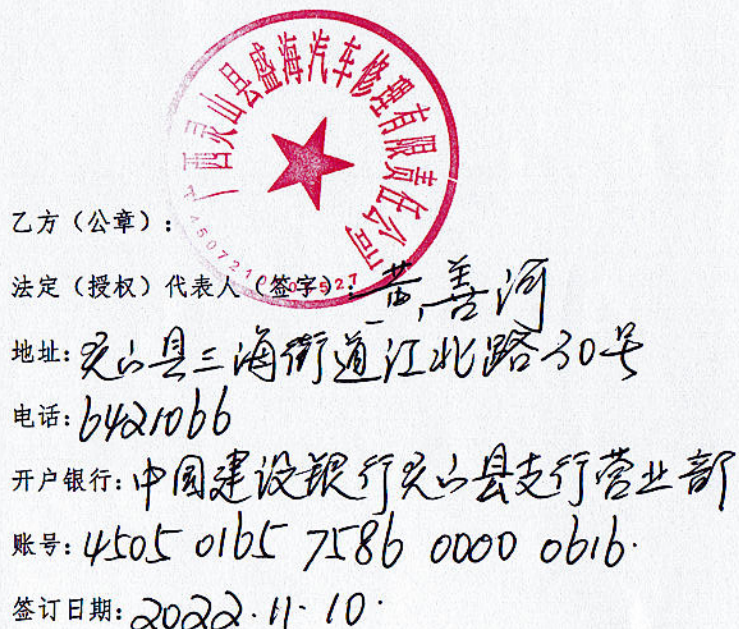 广西灵山县盛海汽车修理有限责任公司
乙方（公章）：
法定（授权）代表人（签字）：黄善河
地址：灵山县三海街道江北路30号
电话：6421066
开户银行：中国建设银行灵山县支行营业部
账号：4505 0165 7586 0000 0616.
签订日期：2022.11.10.